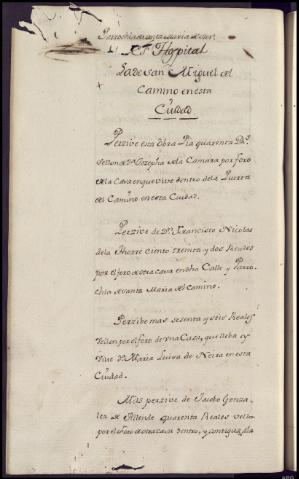 Parrochia de santa Maria del
El Hospital
La de san Miguel del
Camino en esta
Ciudad
Perzive esta obra Pia quarenta Rs
vellon de Dn Josepha de la Camara por foro
de la Casa en que vive dentro de la Puerta
del Camino en esta Ciudad.
Perzive de Dn Francisco Nicolas
de la Thorre ciento treinta y dos Reales
por el foro de otra casa en dha Calle y Parro
chia de santa Maria del camino.
Percibe mas sesenta y seis Reales
vellon por el foro de una Casa, que lleba y
vive Da Maria Luisa de Neira en esta
Ciudad.
Mas perzive de Jacobo Gonza
lez de Allende quarenta Reales vellon
por el foro de otra casa dentro, y contigua a la